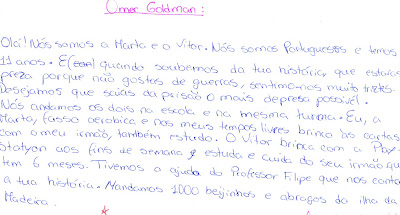 Omer Goldman:
Olá! Nós somos a Marta e o Vitor. Nós somos Portugueses e temos
11 anos. E quando soubemos da tua história, que estavas
preza porque não gostas de guerras, sentimo-nos muito tristes.
Desejamos que saias da prisão o mais depresa possivel.
Nós andamos os dois na escola e na mesma turma. Eu, a
Marta, fasso aerobica e nos meus tempos livres brinco às cartas
com o meu irmão, também estudo. O Vitor brinca com a Play-
Statyon aos fins de semana, estuda e cuida do seu irmão que
tem 6 meses. Tivemos a ajuda do Professor Filipe que nos conta
a tua história. Mandamos 1000 beijinhos e abraços da ilha da
Madeira.